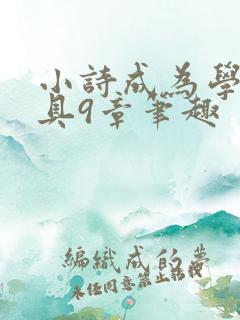 小詩成為學
具9章筆趣
編織成的夢
未任同意禁止轉載